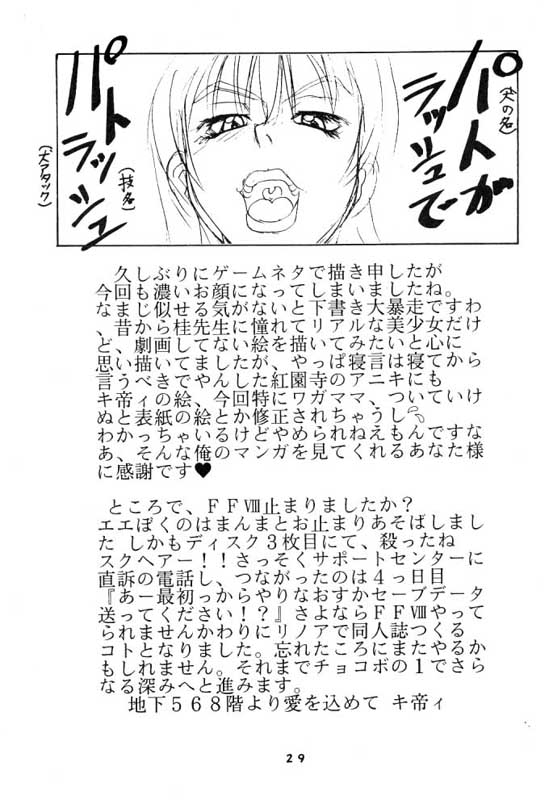 パトが
ラッシュで
(犬の名)
パト
ラッシュ
(技名)
(犬アタック)
久しぶりにゲームネタで描き申したが
今回も濃いお顔になってしまいましたね。
なまじ似せる気がないと下書き大暴走ですわ
、昔から桂先生に憧れてリアルな美少女だけ
ど、劇画してない絵を描いてみたいと心に
思い描いてましたが、やっぱ寝言は寝てから
言うべきでやんした紅園寺のアニキにも
キ帝ィの絵、今回特にワガママ、ついていけ
ぬと表紙の絵とか修正されちゃうし
わかっちゃいるけどやめられねえもんですな
あ、そんな俺のマンガを見てくれるあなた様
に感謝です♥
ところで、ＦＦⅧ止まりましたか？
エエぼくのはまんまとお止まりあそばしまし
た しかもディスク３枚目にて、殺ったね
スクヘアー！！さっそくサポートセンターに
直訴の電話し、つながったのは４っ日目
『あー最初っからやりなおすかセーブデータ
送ってください！？』さよならＦＦⅧやって
られませんかわりにリノアで同人誌つくる
コトとなりました。忘れたころにまたやるか
もしれません。それまでチョコボの１でさら
なる深みへと進みます。
地下５６８階より愛を込めて キ帝ィ
29